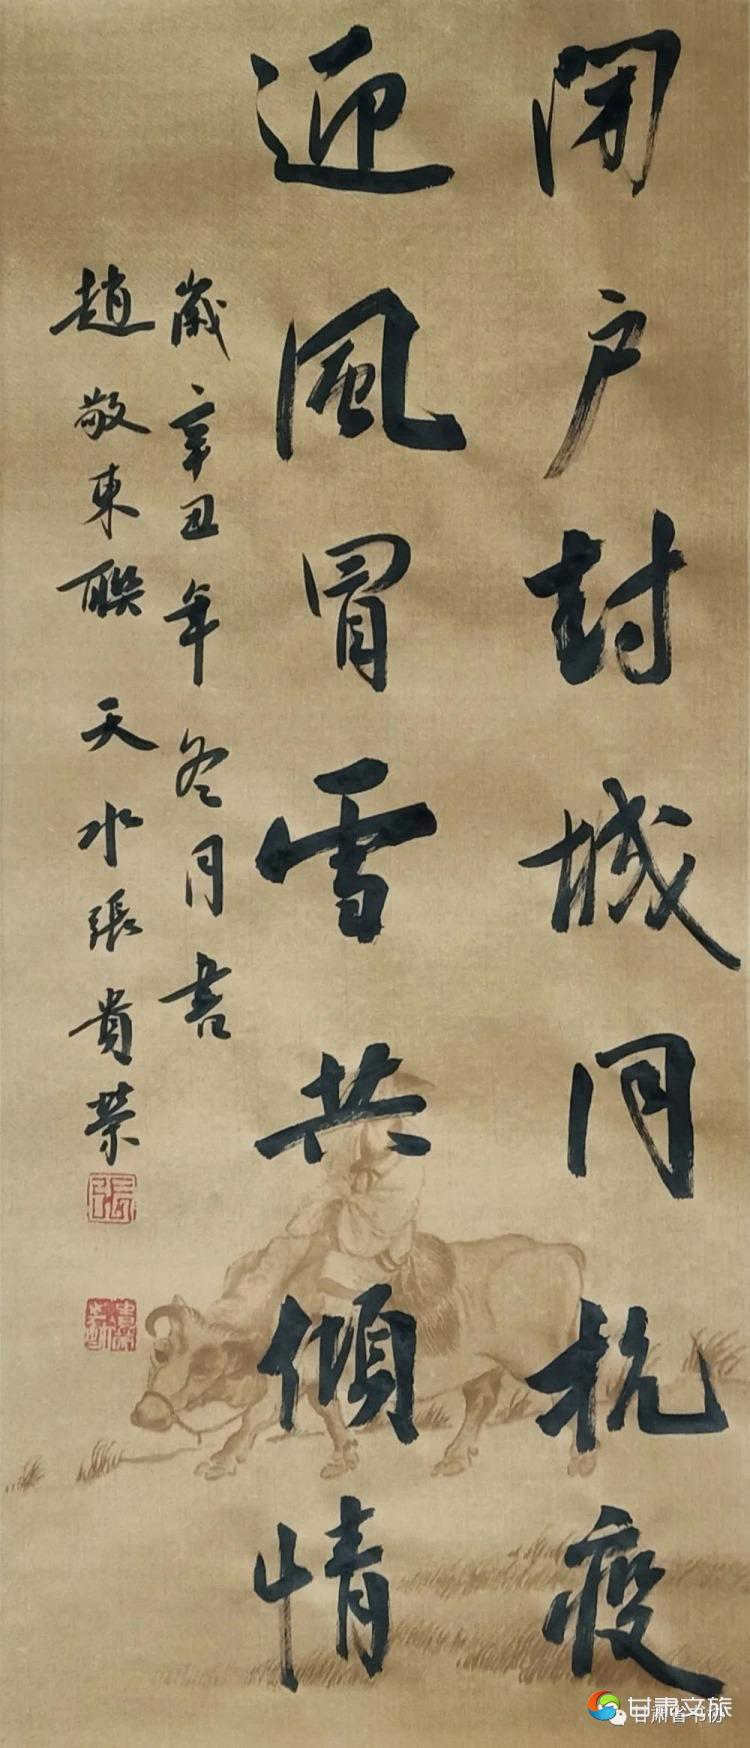 闭户封城同抗疫
迎風冒雪共傾情
歲辛丑年冬月書
趙敬東聯 天水張貴榮
張
甘肃文旅
甘肃省书协